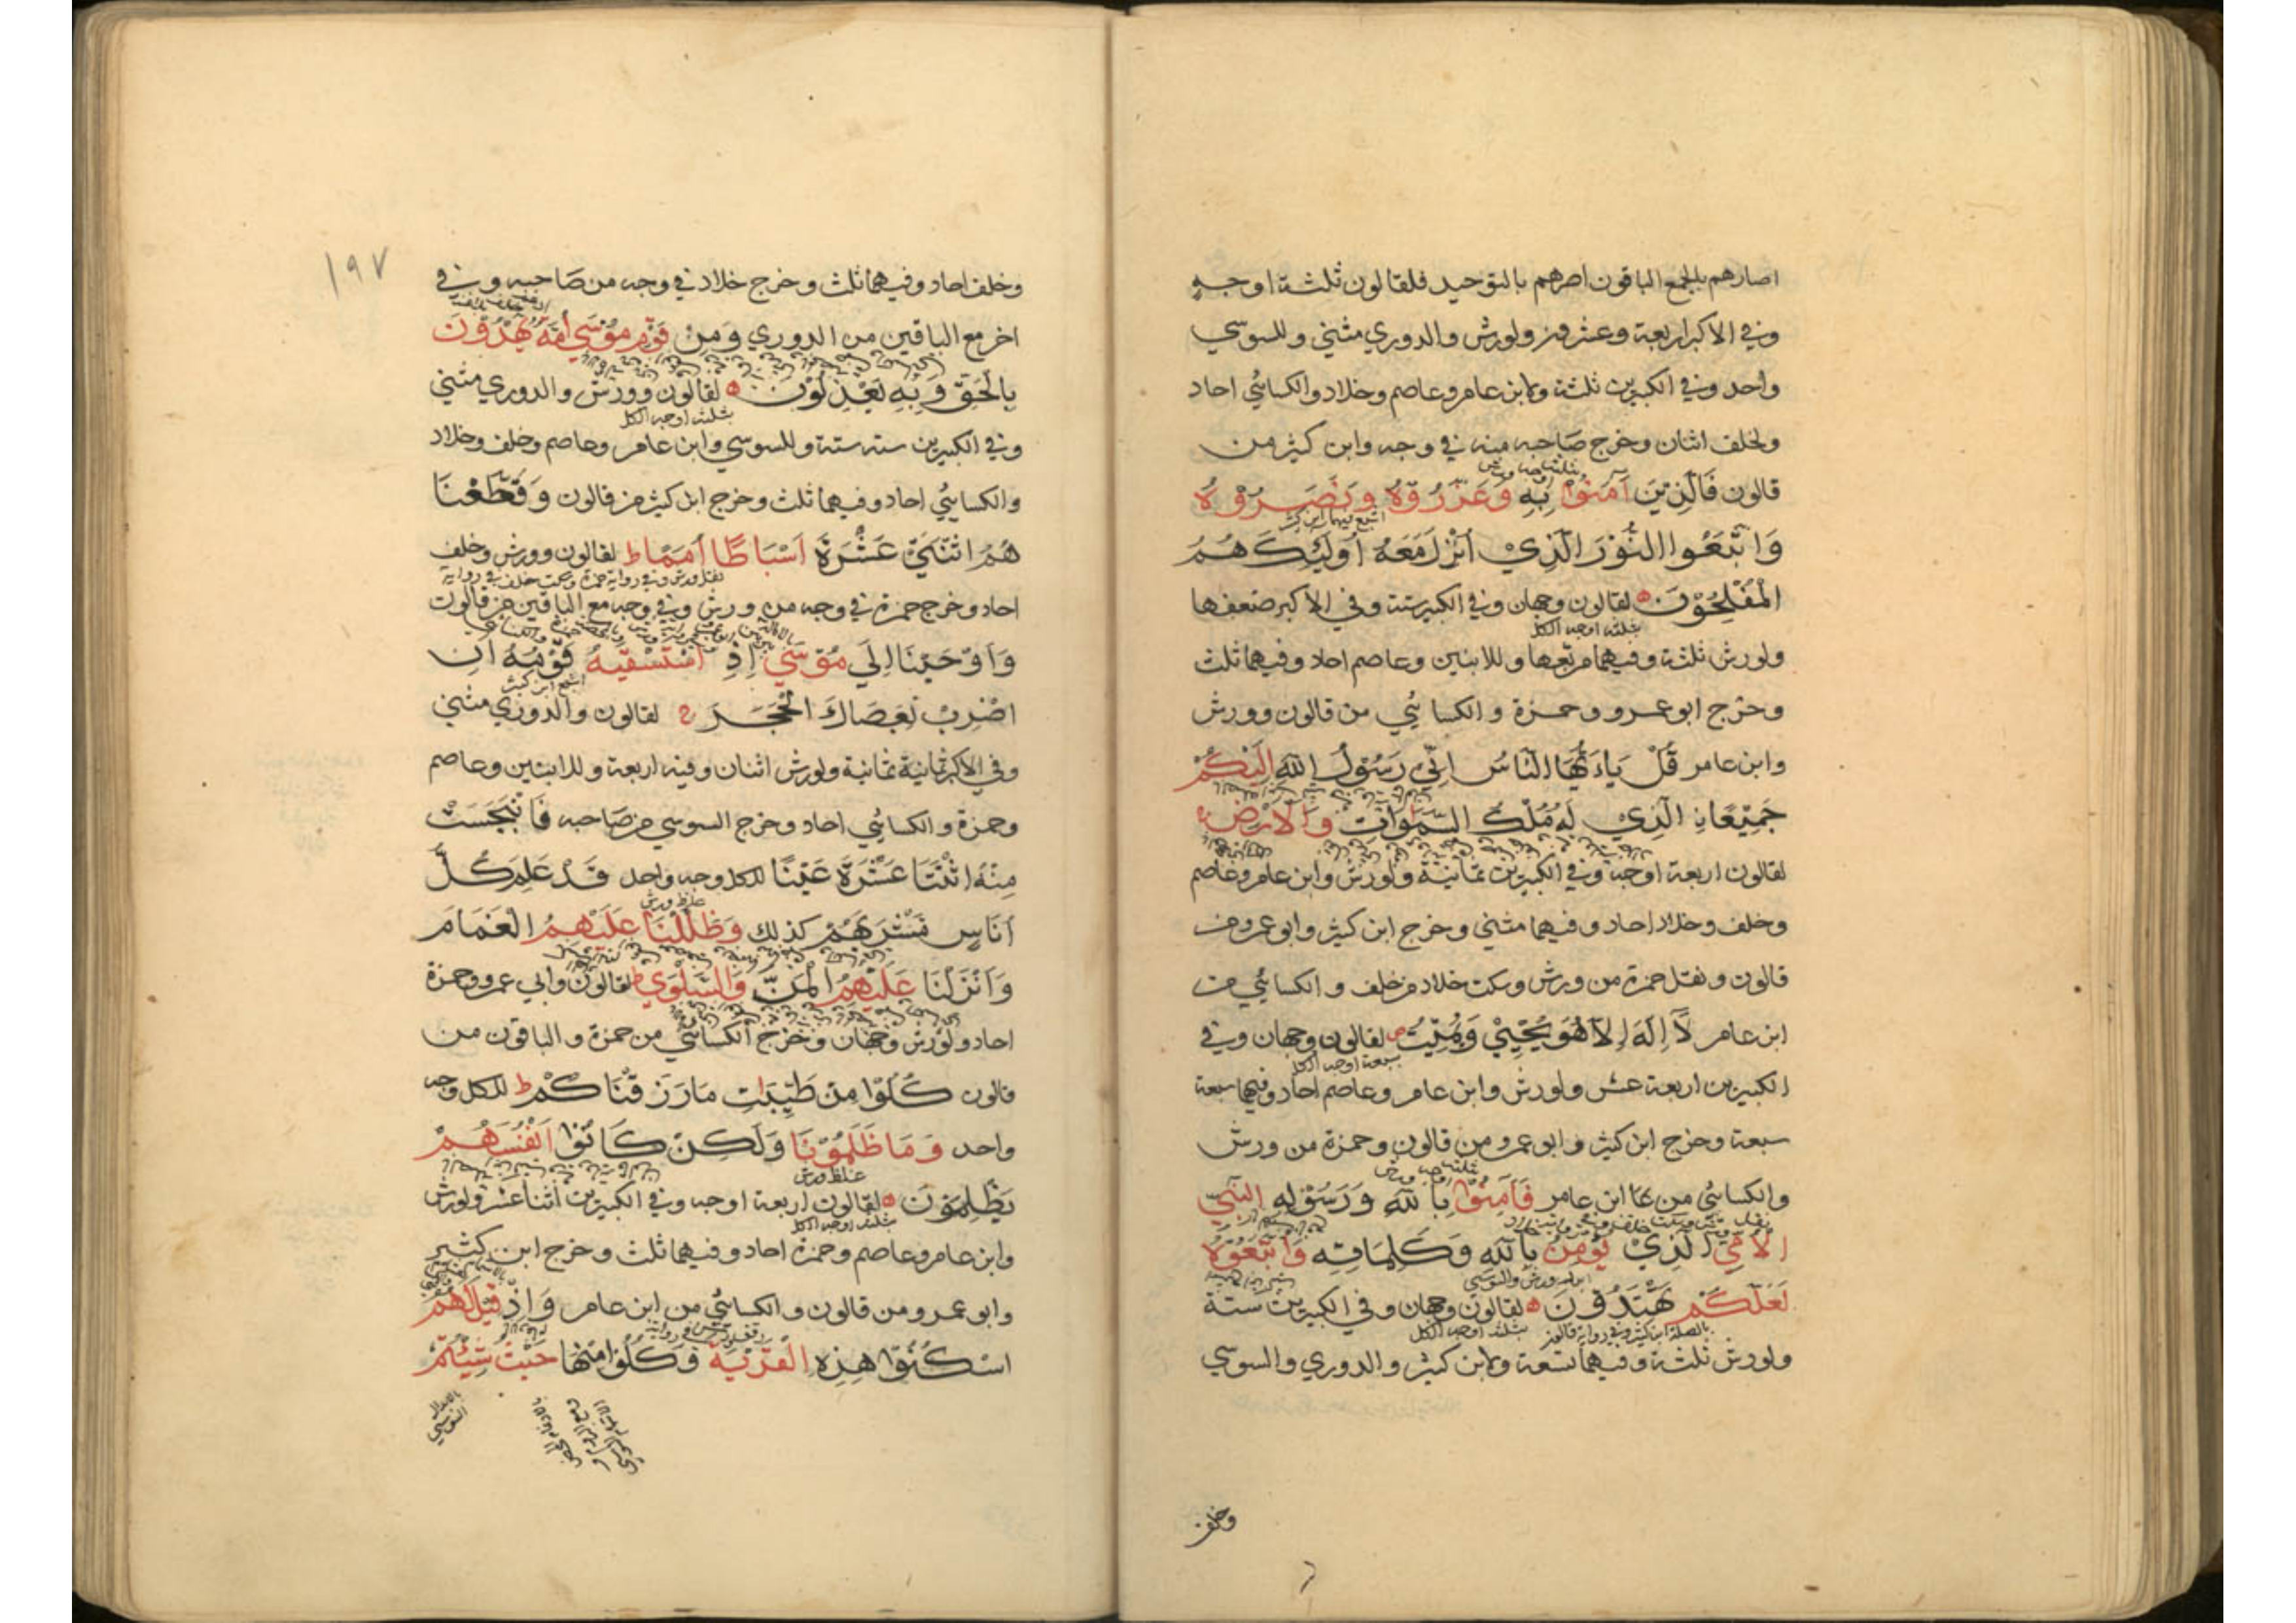 اصارهم بالجمع الباقون اصرهم بالتوحيد فلقالون ثلثة اوجه
وفي الاكبر اربعة وعشر ولورش والدوري مثنى وللسوسي
واحد وفي الكبيرين ثلثة ولابن عامر وعاصم وخلاد والكسائي احاد
ولخلف اثنان وخرج صاحبه منه في وجه وابن كثير من
قالون فَالَّذِينَ آمَنُوْا بِهِ وَعَزَّرُوْهُ وَنَصَرُوْهُ
وَاتَّبَعُوا النُّوْرَ الَّذِيْ اُنْزِلَ مَعَهُ اُولٰئِكَ هُمُ
الْمُفْلِحُوْنَ لقالون وجهان وفي الكبير ستة وفي الاكبر ضعفها
بثلثة اوجه الكل
ولورش ثلثة وفيهما مربعها وللابنين وعاصم احاد وفيهما ثلث
وخرج ابو عمرو وحمزة والكسائي من قالون وورش
وابن عامر قُلْ يَاءَيُّهَا النَّاسُ اِنِّيْ رَسُوْلُ اللّٰهِ اِلَيْكُمْ
جَمِيْعًا نِ الَّذِيْ لَهُ مُلْكُ السَّمٰوَاتِ وَالْاَرْضِ
لقالون اربعة اوجه وفي الكبيرين ثمانية ولورش وابن عامر وعاصم
وخلف وخلاد احاد وفيهما مثنى وخرج ابن كثير وابو عمرو من
قالون ونقل حمزة من ورش وسكت خلاد من خلف والكسائي من
ابن عامر لَا اِلٰهَ اِلَّا هُوَ يُحْيِيْ وَيُمِيْتُ لقالون وجهان وفي
بسبعة اوجه الكل
الكبيرين اربعة عشر ولورش وابن عامر وعاصم احاد وفيهما سبعة
سبعة وخرج ابن كثير وابو عمرو من قالون وحمزة من ورش
والكسائي من ابن عامر فَآمِنُوْا بِاللّٰهِ وَرَسُوْلِهِ النَّبِيِّ
الْاُمِّيِّ الَّذِيْ يُؤْمِنُ بِاللّٰهِ وَكَلِمَاتِهِ وَاتَّبِعُوْهُ
لَعَلَّكُمْ تَهْتَدُوْنَ لقالون وجهان وفي الكبيرين ستة
بثلثة اوجه الكل
ولورش ثلثة وفيهما تسعة ولابن كثير والدوري والسوسي
وخلف
١٩٧
وخلف احاد وفيهما ثلث وخرج خلاد في وجه من صاحبه وفي
اخر مع الباقين من الدوري وَمِنْ قَوْمِ مُوْسٰى اُمَّةٌ يَهْدُوْنَ
بِالْحَقِّ وَبِهِ يَعْدِلُوْنَ لقالون وورش والدوري مثنى
بثلثة اوجه الكل
وفي الكبيرين ستة ستة وللسوسي وابن عامر وعاصم وخلف وخلاد
والكسائي احاد وفيهما ثلث وخرج ابن كثير من قالون وَقَطَّعْنَا
هُمُ اثْنَتَيْ عَشْرَةَ اَسْبَاطًا اُمَمًا ط لقالون وورش وخلف
احاد وخرج حمزة في وجه من ورش وفي وجه مع الباقين من قالون
وَاَوْحَيْنَا اِلٰى مُوْسٰى اِذِ اسْتَسْقٰيهُ قَوْمُهُ اَنِ
اشبع ابن كثير
اضْرِبْ بِعَصَاكَ الْحَجَرَ لقالون والدوري مثنى
وفي الاكبر ثمانية ثمانية ولورش اثنان وفيه اربعة وللابنين وعاصم
وحمزة والكسائي احاد وخرج السوسي من صاحبه فَانْبَجَسَتْ
مِنْهُ اثْنَتَا عَشْرَةَ عَيْنًا للكل وجه واحد قَدْ عَلِمَ كُلُّ
اُنَاسٍ مَشْرَبَهُمْ كذلك وَظَلَّلْنَا عَلَيْهِمُ الْغَمَامَ
وَاَنْزَلْنَا عَلَيْهِمُ الْمَنَّ وَالسَّلْوٰى ط لقالون وابي عمرو وحمزة
احاد ولورش وجهان وخرج الكسائي من حمزة والباقون من
قالون كُلُوْا مِنْ طَيِّبَاتِ مَا رَزَقْنَاكُمْ ط للكل وجه
واحد وَمَا ظَلَمُوْنَا وَلٰكِنْ كَانُوْا اَنْفُسَهُمْ
غلظ ورش
يَظْلِمُوْنَ لقالون اربعة اوجه وفي الكبيرين اثنا عشر ولورش
بثلثة اوجه الكل
وابن عامر وعاصم وحمزة احاد وفيهما ثلث وخرج ابن كثير
وابو عمرو من قالون والكسائي من ابن عامر وَاِذْ قِيْلَ لَهُمُ
اسْكُنُوْا هٰذِهِ الْقَرْيَةَ وَكُلُوْا مِنْهَا حَيْثُ شِئْتُمْ
بالابدال
السوسي